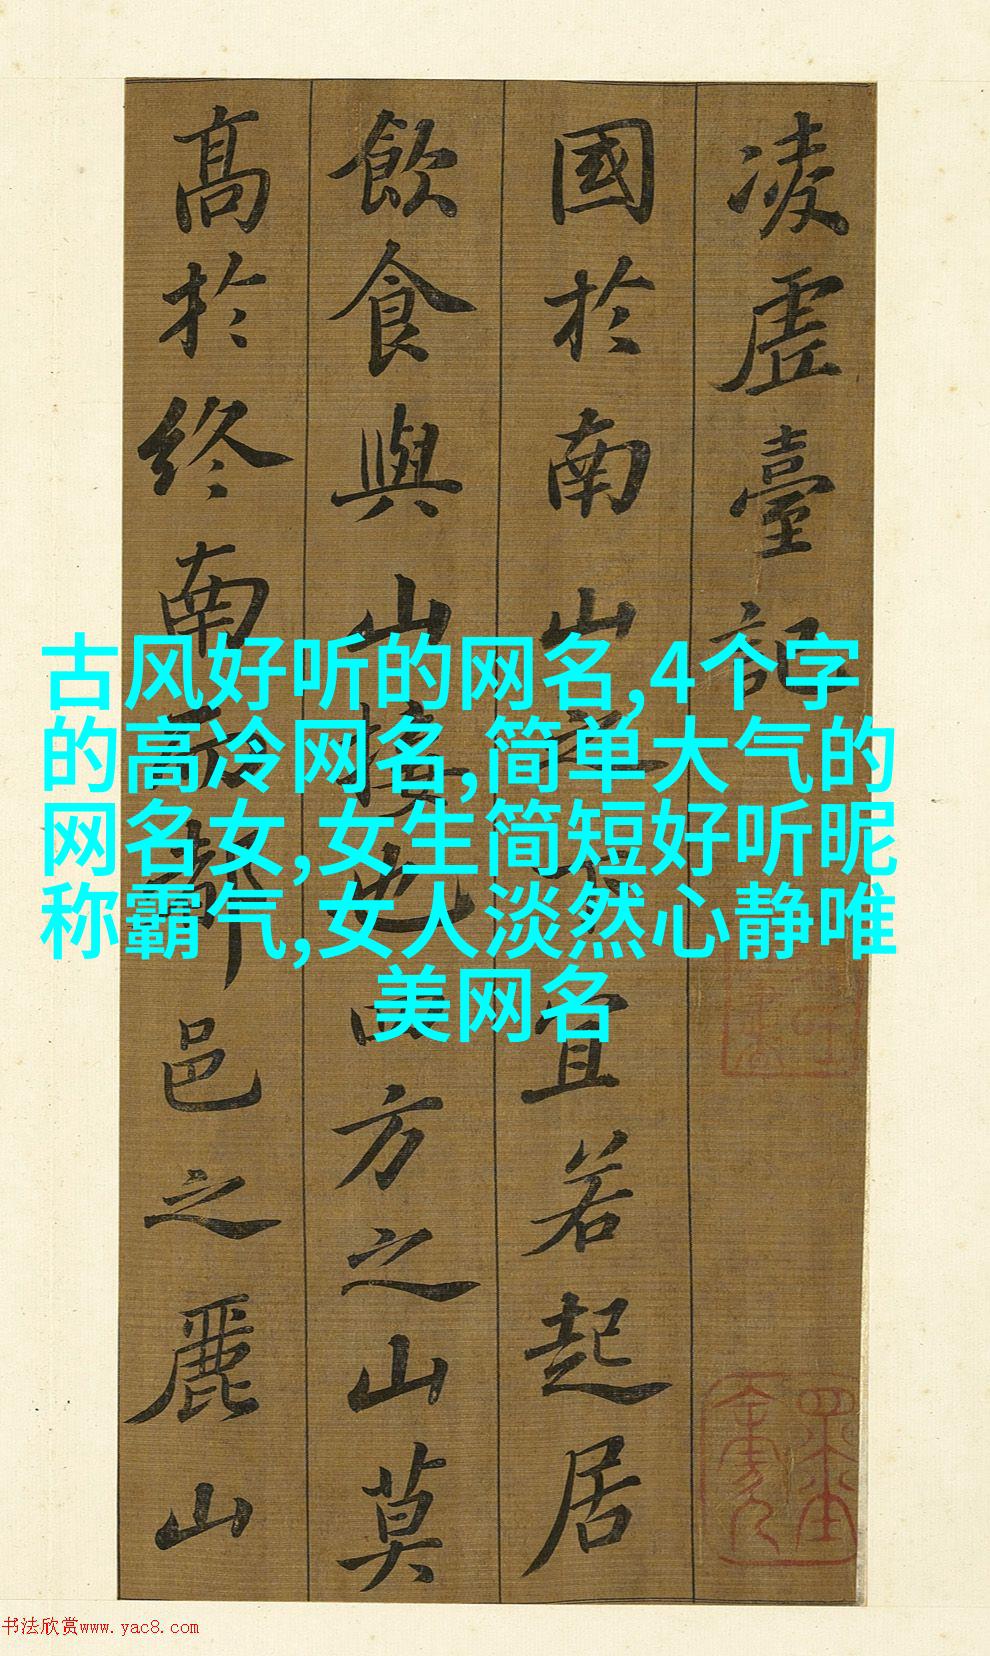 凌虛臺記
國於南山之下宜若起居
飲食與山接也四方之山莫
高於終南而都邑之麗山
古风好听的网名,4个字
的高冷网名,简单大气的
网名女,女生简短好听昵
称霸气,女人淡然心静唯
美网名
书法欣赏www.yac8.com